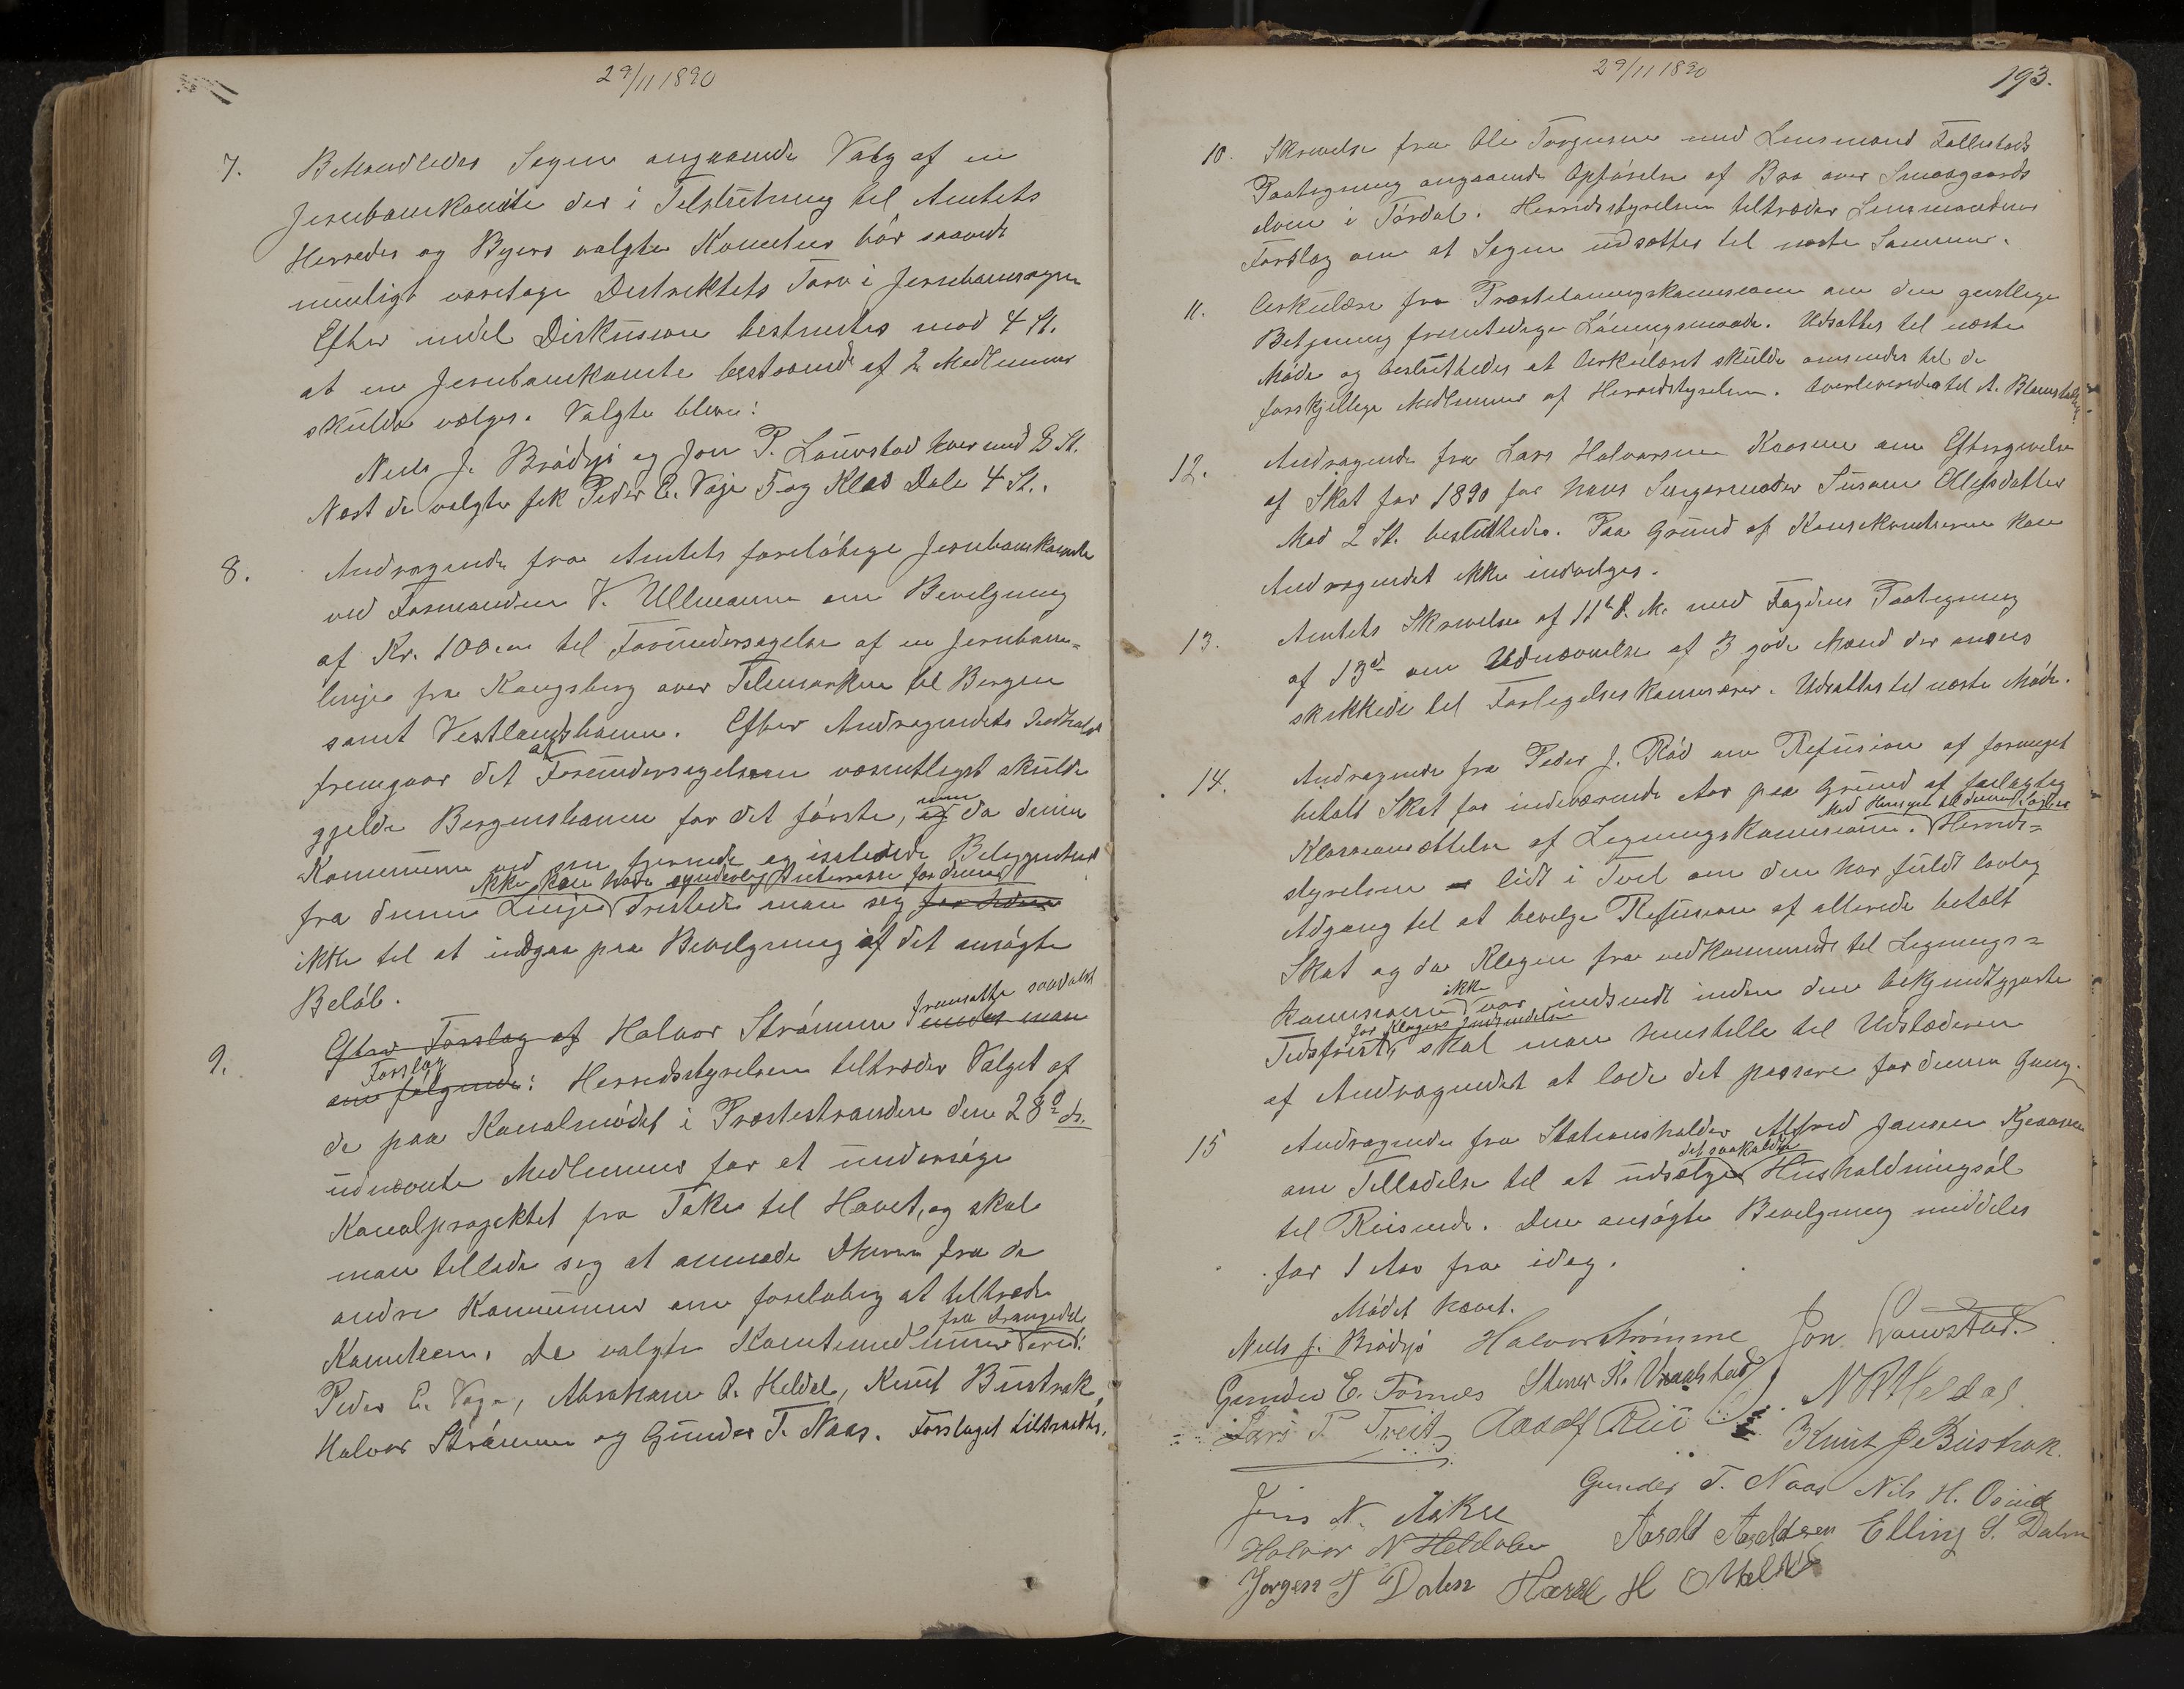 29/11 1890
7. Behandledes Sagen angaaende Valg af en
Jernbanekomite der i Tilslutning til Amtets
Herreder og Byers valgte Komiteer bör saavidt
muligt varetage Distriktets Tarv i Jernbanesagen
Efter endel Diskusion bestemtes mod 4 St.
at en Jernbanekomite bestaaende af 2 Medlemmer
skulde vælges. Valgte bleve:
Niels J. Brödsjö og Jon P. Lauvstad hver med 8 St.
Næst de valgte fik Peder E. Voje 5 og Klas Dale 4 St..
8. Andragende fra Amtets foreløbige Jernbanekomite
ved Formanden V. Ullmann om Bevilgning
af Kr. 100,00 til Forundersøgelse af en Jernbane-
linje fra Kongsberg over Telemarken til Bergen
samt Vestlandsbanen. Efter Andragendets Indhold
fremgaar det at Forundersøgelsen væsentligst skulde
gjelde Bergensbanen for det første, og da denne
Kommune ved sin fjernede og isolerede Beliggenhed
ikke kan have synderlig Interesse for denne
fra denne Linje Tristede man sig for tiden
ikke til at indgaa paa Bevilgning af det ansøgte
Belöb.
9. Efter Forslag af Halvor Strömme fremsatte saadant
Forslag
om følgende: Herredsstyrelsen tiltræder Valget af
de paa Kanalmödet i Præstestranden den 28de ds.
udnævnte Medlemmer for at undersöge
Kanalprojektet fra Toke til Havet, og skal
man tillade sig at anmode Dhrrn fra de
andre Kommuner om foreløbig at tiltræde
Komiteen. De valgte Komitemedlemmer fra Drangedal ere:
Peder E. Voje, Abraham A. Heldal, Knut Bustrak,
Halvor Strömme og Gunder T. Naas. Forslaget tiltraadtes.
29/11 1890
193.
10. Skrivelse fra Ole Torgersen med Lensmand Tallerstads
Paategning angaaende Opførelse af Bro over Smaagaards
elven i Tördal. Herredsstyrelsen tiltræder Lensmandens
Forslag om at Sagen udsættes til næste Sommer.
11. Cirkulære fra Præstelønningskommissionen om den geistlige
Betjening fremtidige Lönningsmaade. Udsættes til næste
Møde og besluttedes at Cirkulæret skulde omsendes til de
forskjellige Medlemmer af Herredsstyrelsen. Overleveredes til A.
12. Andragende fra Lars Halvorsen Kaasene om Eftergivelse
af Skat for 1890 for hans Svigermoder Susane Ellefsdatter
Mod 2 St. besluttedes. Paa Grund af Konsekventserne kan
Andragendet ikke indvilges.
13. Amtets Skrivelse af 11te d. M. med Fogdens Paategning
af 13de om Udnævnelse af 3 gode Mænd der ansees
skikkede til Forligelseskommisærer. Udsættes til næste Møde.
14. Andragende fra Peder J. Röd om Refusion af formeget
betalt Skat for indeværende Aar paa Grund af feilagtig
Klasseansættelse af Ligningskommisionen. Med Hensyn til denne Sag er Herreds-
styrelsen lidt i Tvil om den har fuldt lovlig
Adgang til at bevilge Refusion af allerede betalt
Skat og da Klagen fra vedkommende til Lignings-
kommisionen ikke var indsendt inden den bekjendtgjorte
Tidsfrist for Klagers Indsendelse, skal man henstille til Udstæderen
af Andragendet at lade det passere for denne Gang.
15 Andragende fra Stationsholder Alfred Jansen Kjeaasen
om Tilladelse til at udsælge det saakaldte Husholdningsöl
til Reisende. Den ansøgte Bevilgning meddeles
for 1 Aar fra idag.
Mödet hævet.
Niels J. Brödsjö Halvor Strömme Jon Lauvstad.
Gunder E. Törnes Stener K. Vraalstad N A Heldal
Lars P. Treit Aadolf Riis Knut J Bustrak.
Gunder T. Naas Nils H. Osind
Jens N. Aakre
Halvor N Heldalen Aasold Aasoldsen Elling S. Dalen
Jörgen J Dalen H